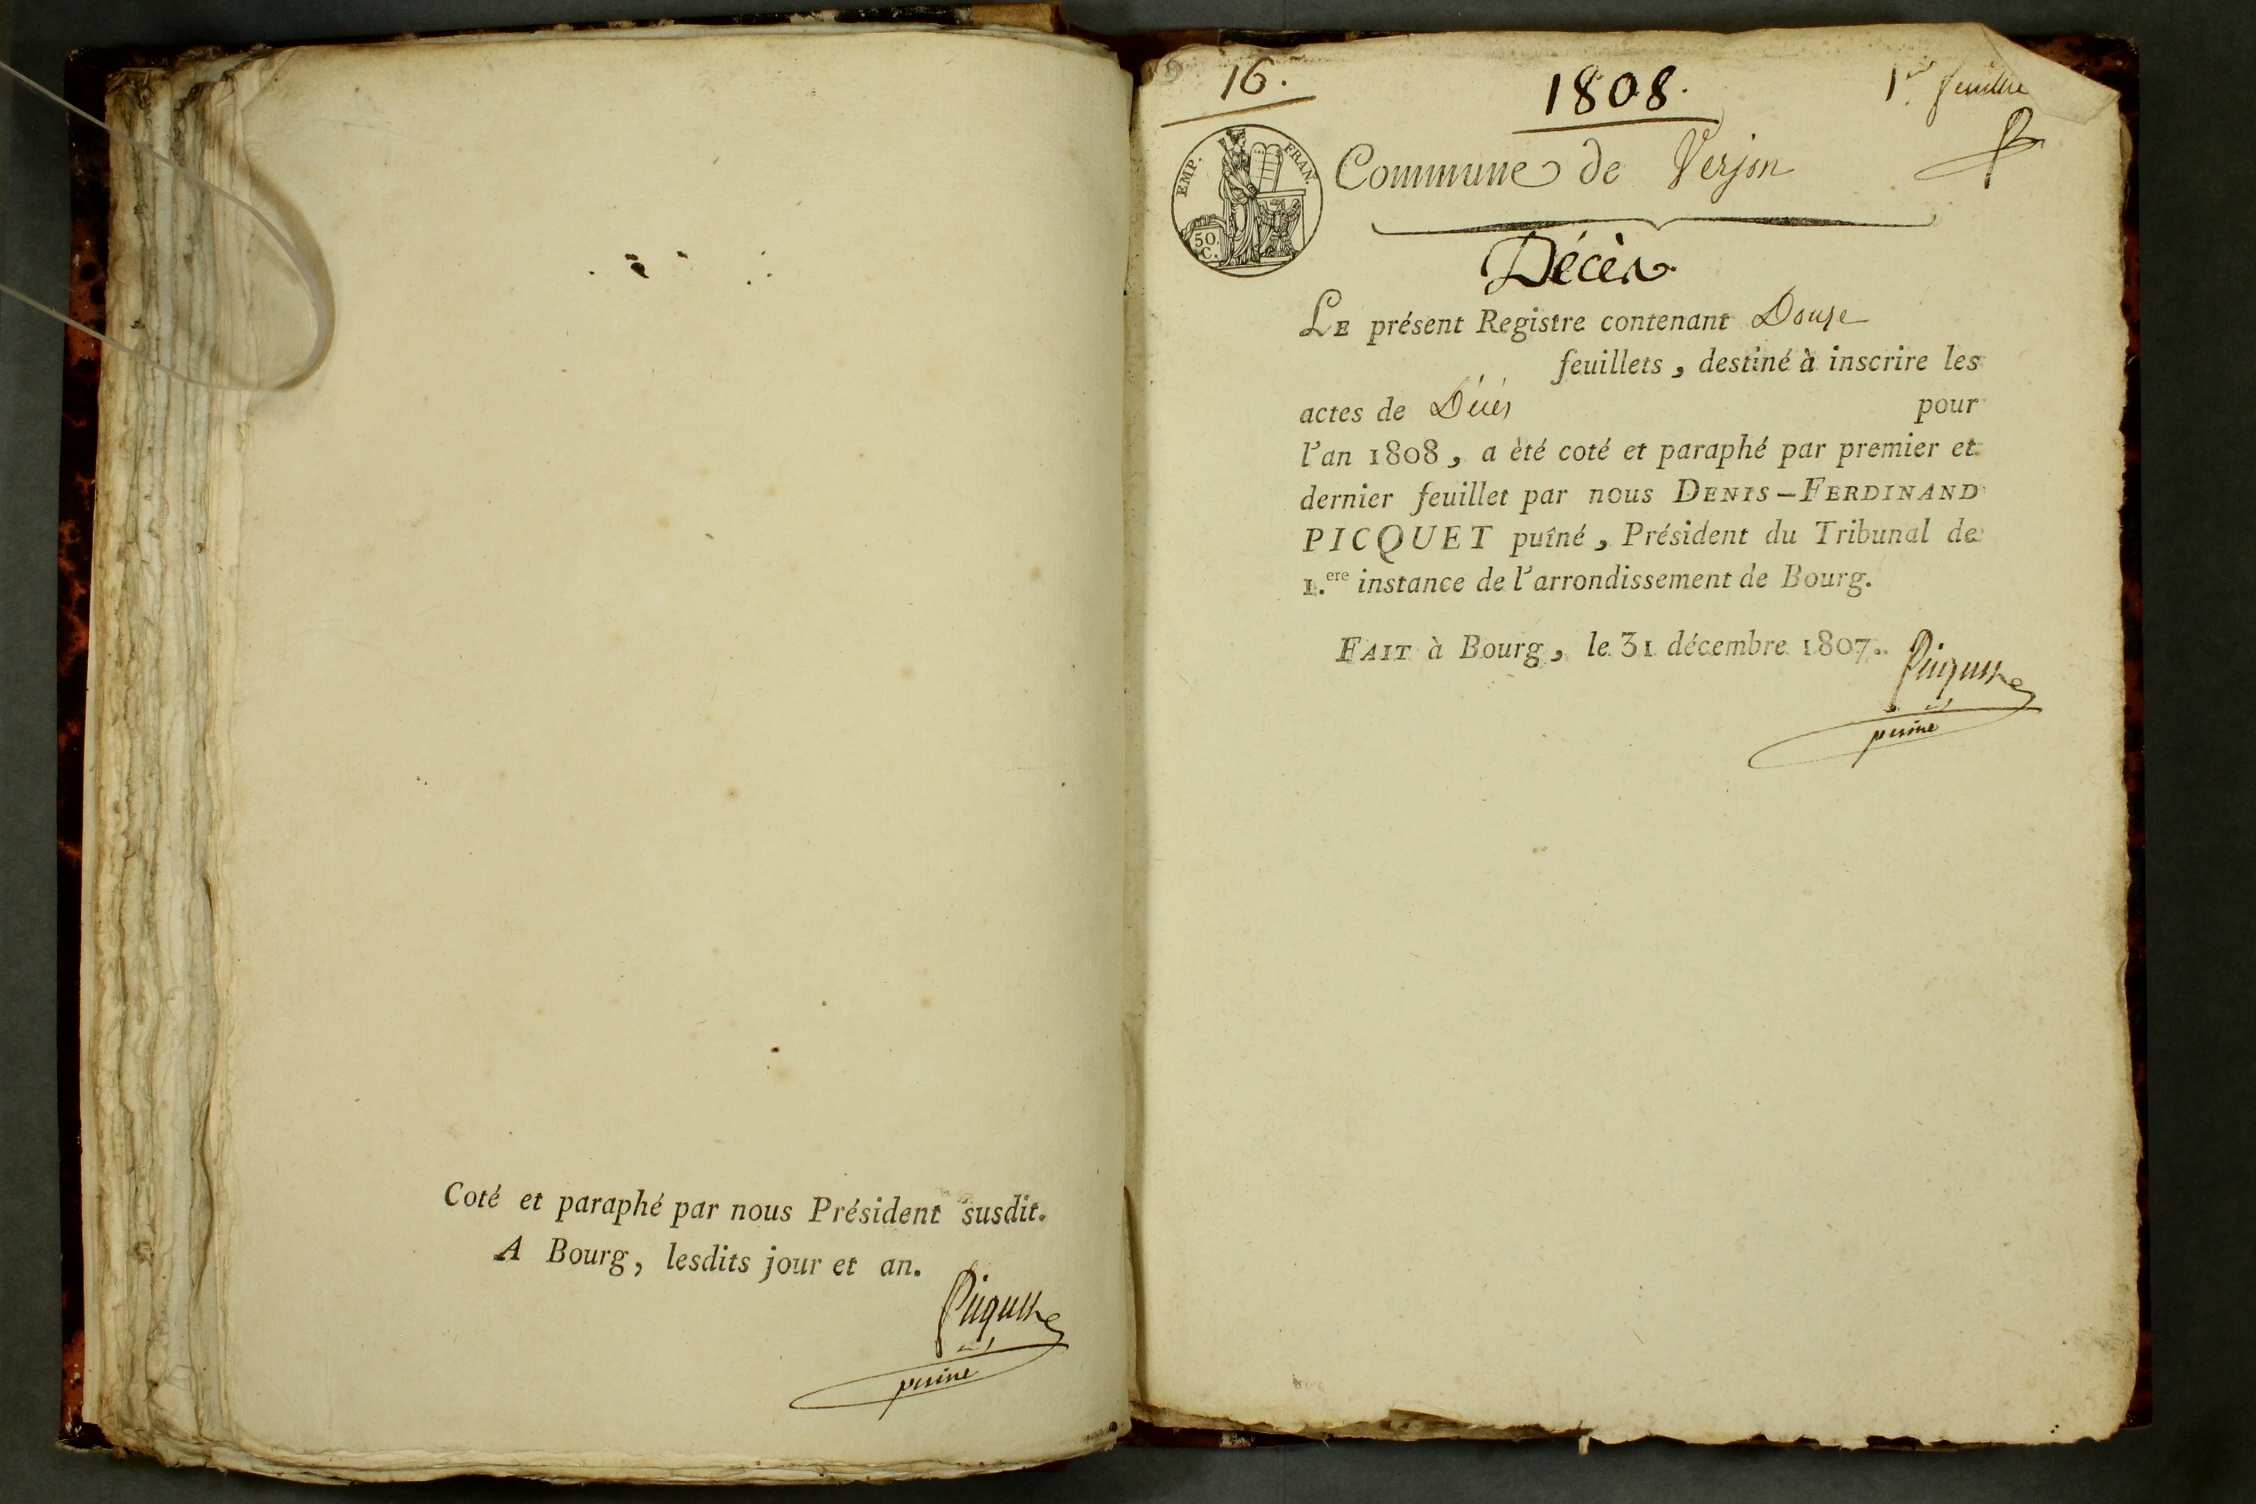 Coté et paraphé par nous Président susdit.
A Bourg, lesdits jour et an.
Picquet
puiné
16.
1808.
1er feuillet
EMP. FRAN.
50.
C.
Commune de Verjon
Décès
LE présent Registre contenant Douze
feuillets, destiné à inscrire les
actes de Décès pour
l'an 1808, a èté coté et paraphé par premier et
dernier feuillet par nous DENIS-FERDINAND
PICQUET puîné, Président du Tribunal de
1.ere instance de l'arrondissement de Bourg.
FAIT à Bourg, le 31 décembre 1807.
Picquet
puiné